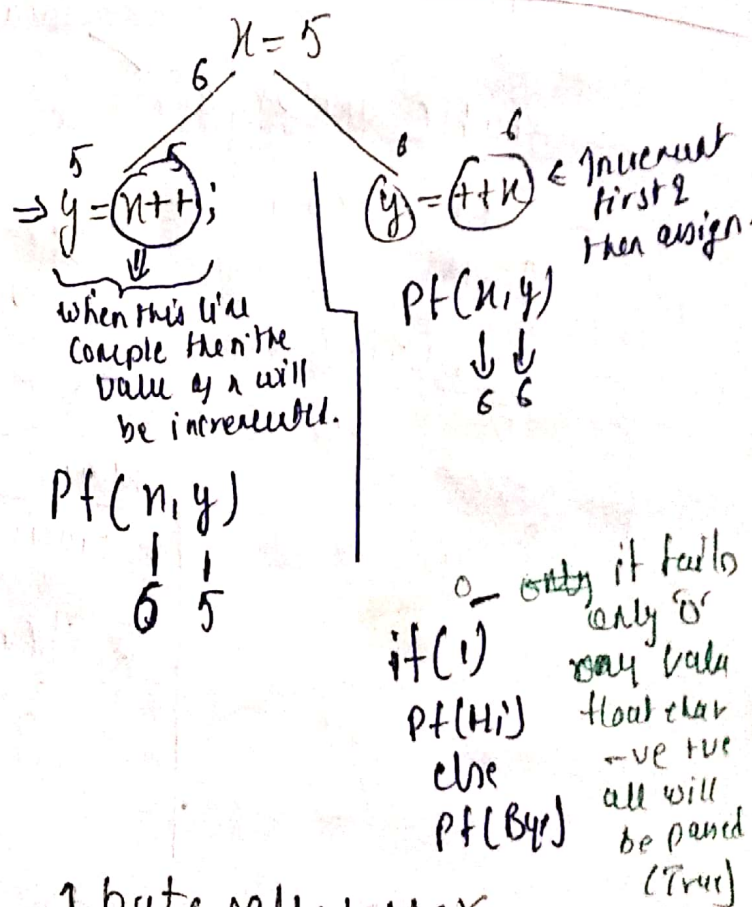 x = 5
6
5 5
⇒ y = x++;
⇓
when this line
comple then the
value of x will
be incremented.
Pf(x, y)
6 5
6 6
y = ++x ← Increment
first &
then assign.
Pf(x, y)
↓ ↓
6 6
0 – only it fails
only '0'
if(1) any value
Pf(Hi) float char
else -ve +ve
Pf(Bye) all will
be passed
(True)
1 byte